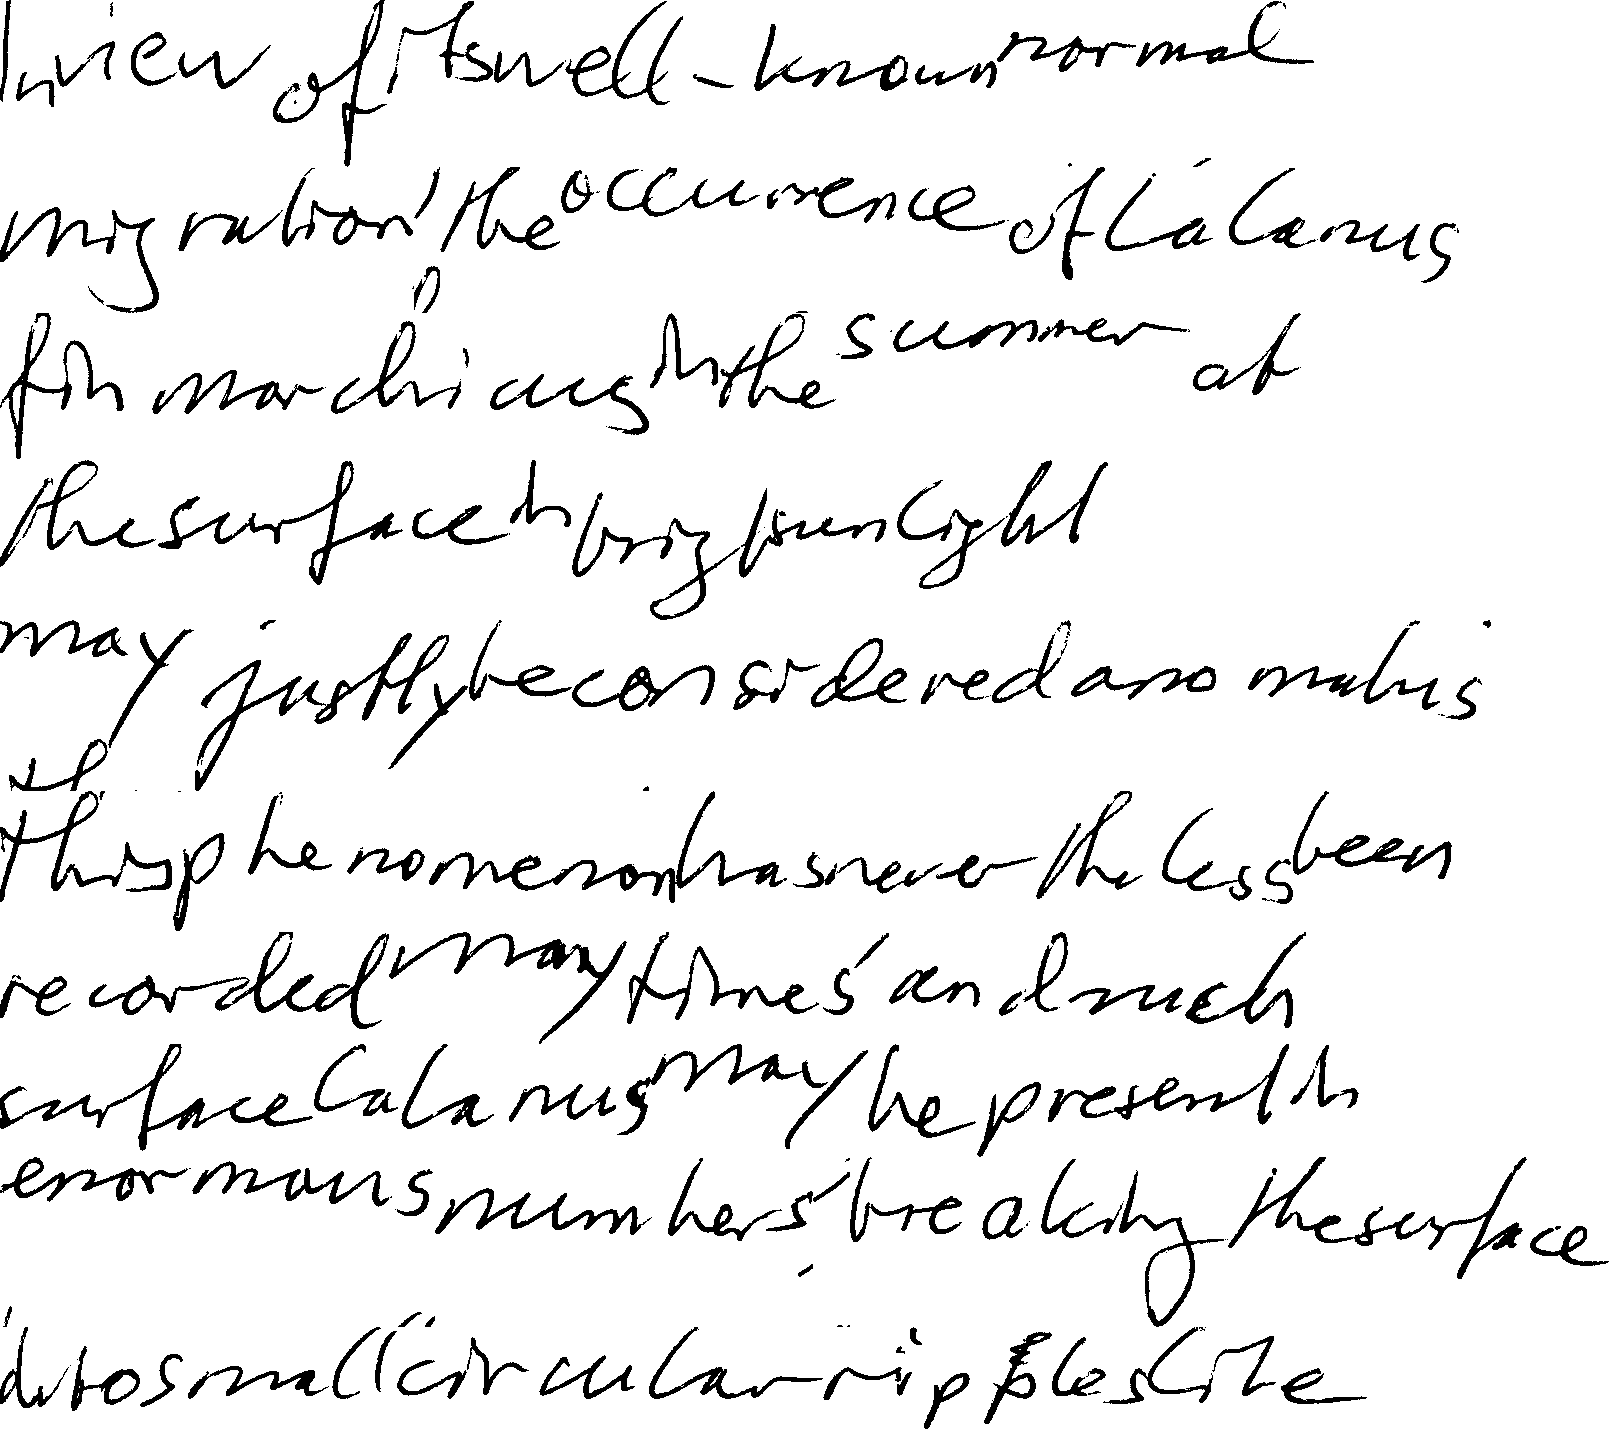 In view of its well-known normal
migration, the occurrence of Calanus
finmarchicus in the summer at
the surface in bright sunlight
may justly be considered anomalus
this phenomenon has never the less been
recorded many times and such
surface Calanus may be present in
enormous numbers breaking the surface
into small circular ripples like